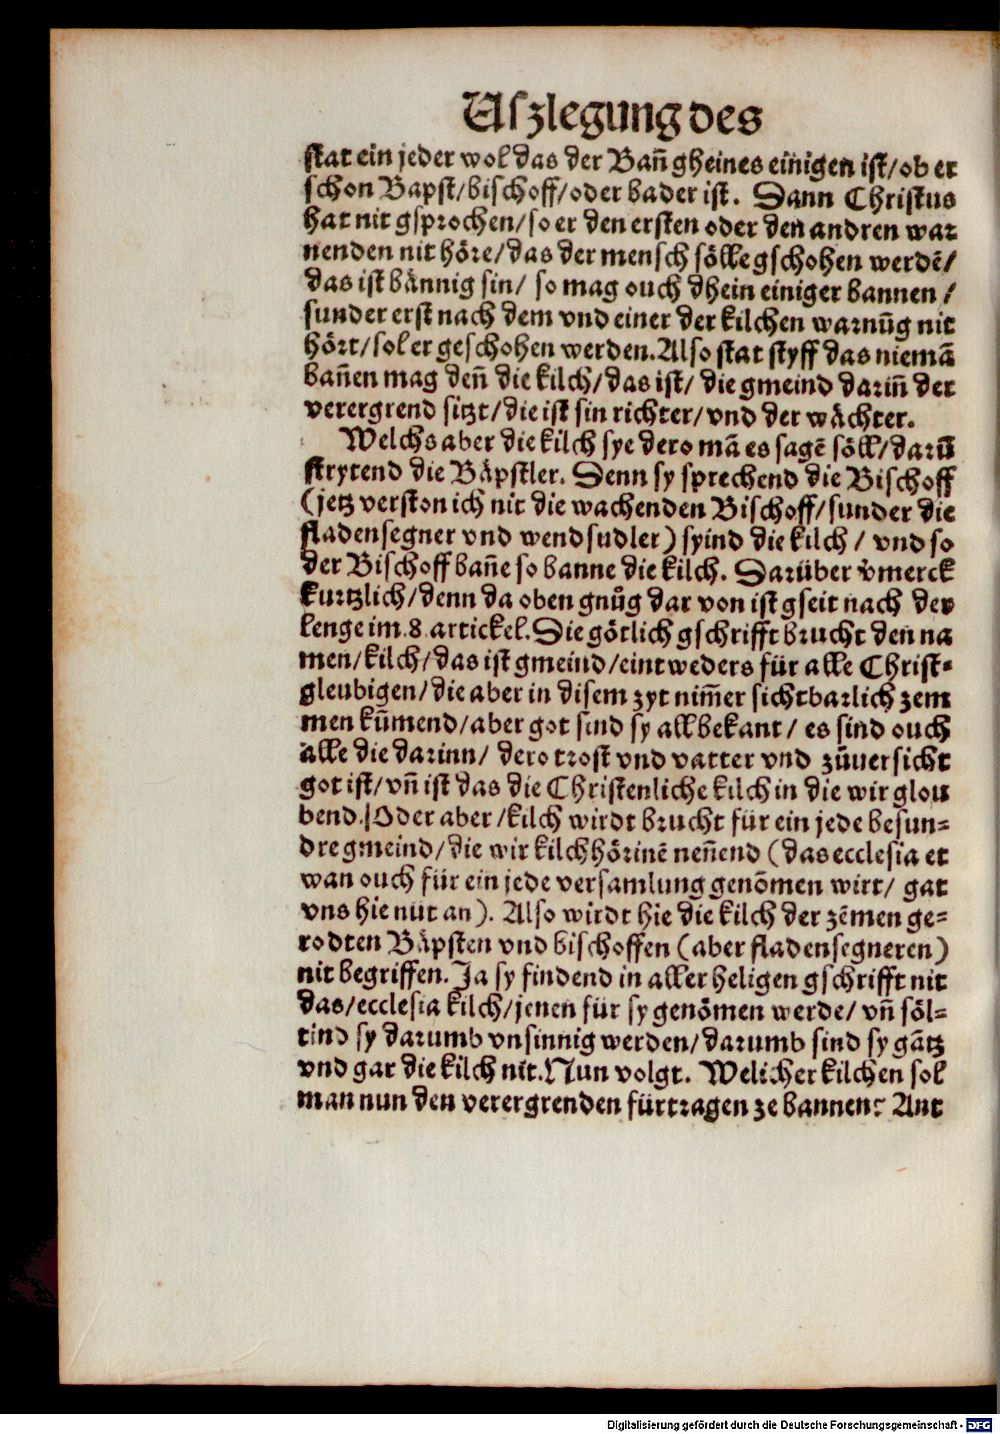 Uſzlegung des
ſtat ein jeder wol das der Bañ gheines einigen iſt/ob er
ſchon Bapſt/biſchoff/oder bader iſt. Dann Chriſtus
hat nit gſprochen/ſo er den erſten oder den andren war
nenden nit höre/das der menſch ſölle gſchohen werdē/
das iſt bännig ſin/ ſo mag ouch dhein einiger bannen/
ſunder erſt nach dem vnd einer der kilchen warnũg nit
hört/ſol er geſchohen werden. Alſo ſtat ſtyff das niemā
bañen mag deñ die kilch/das iſt/ die gmeind dariñ der
verergrend ſitzt/die iſt ſin richter/vnd der wächter.
Welchs aber die kilch ſye dero mā es ſagē ſöll/darũ
ſtrytend die Bäpſtler. Denn ſy ſprechend die Biſchoff
(jetz verſton ich nit die wachenden Biſchoff/ſunder die
fladenſegner vnd wendſudler) ſyind die kilch/ vnd ſo
der Biſchoff bañe ſo banne die kilch. Darüber v̄merck
kurtzlich/denn da oben gnůg dar von iſt gſeit nach der
lenge im.8.artickel. Die götlich gſchrifft brucht den na
men/kilch/das iſt gmeind/eintweders für alle Chriſt⸗
gleubigen/die aber in diſem zyt nim̃er ſichtbarlich zem
men kũmend/aber got ſind ſy all bekant/ es ſind ouch
alle die darinn/ dero troſt vnd vatter vnd zůuerſicht
got iſt/vñ iſt das die Chriſtenliche kilch in die wir glou
bend. Oder aber/kilch wirdt brucht für ein jede beſun⸗
dre gmeind/die wir kilchhörinē neñend (das eccleſia et
wan ouch für ein jede verſamlung genōmen wirt/ gat
vns hie nüt an). Alſo wirdt hie die kilch der zēmen ge⸗
rodten Bäpſten vnd biſchoffen (aber fladenſegneren)
nit begriffen. Ja ſy findend in aller heligen gſchrifft nit
das/eccleſia kilch/jenen für ſy genōmen werde/ vñ ſöl⸗
tind ſy darumb vnſinnig werden/darumb ſind ſy gātz
vnd gar die kilch nit. Nun volgt. Welicher kilchen ſol
man nun den verergrenden fürtragen ze bannen? Ant
Digitalisierung gefördert durch die Deutsche Forschungsgemeinschaft - DFG